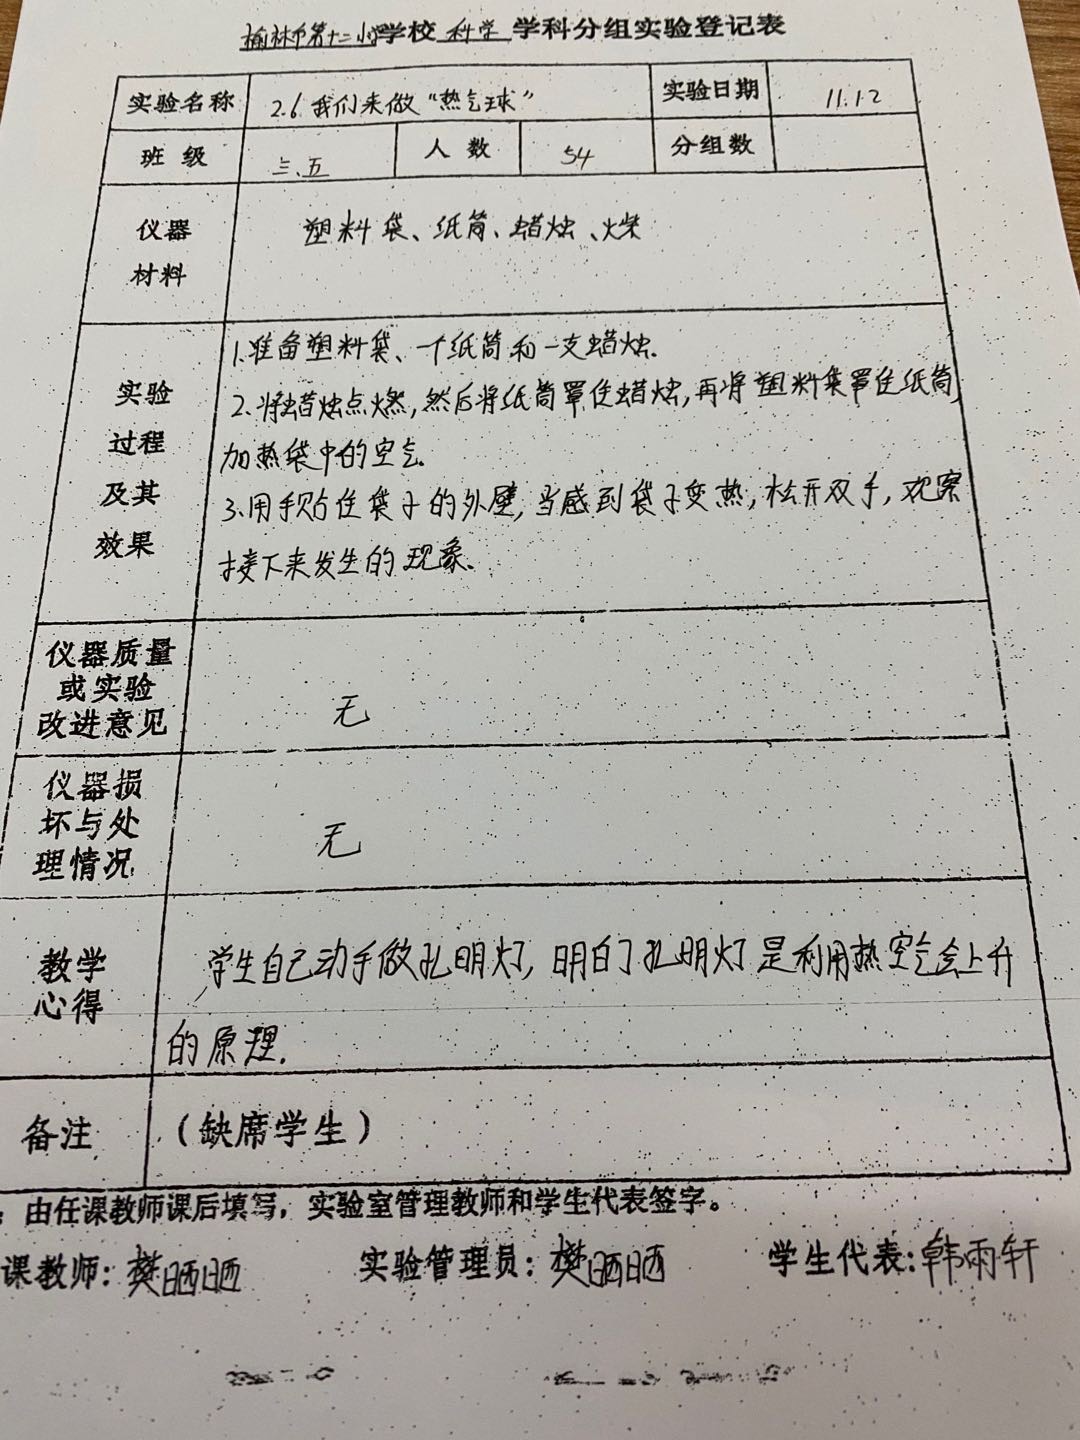 榆林市第十二小学校 科学 学科分组实验登记表
实验名称 2.6 我们来做“热气球” 实验日期 11.12
班级 三、五 人数 54 分组数
仪器 塑料袋、纸筒、蜡烛、火柴
材料
1.准备塑料袋、一个纸筒和一支蜡烛.
实验 2.将蜡烛点燃,然后将纸筒罩住蜡烛,再将塑料袋罩住纸筒,
过程 加热袋中的空气.
及其 3.用手贴住袋子的外壁,当感到袋子变热,松开双手,观察
效果 接下来发生的现象.
仪器质量
或实验
改进意见 无
仪器损
坏与处 无
理情况
教学 学生自己动手做孔明灯,明白了孔明灯是利用热空气会上升
心得 的原理.
备注 (缺席学生)
:由任课教师课后填写,实验室管理教师和学生代表签字。
课教师:樊晒晒 实验管理员:樊晒晒 学生代表:韩雨轩